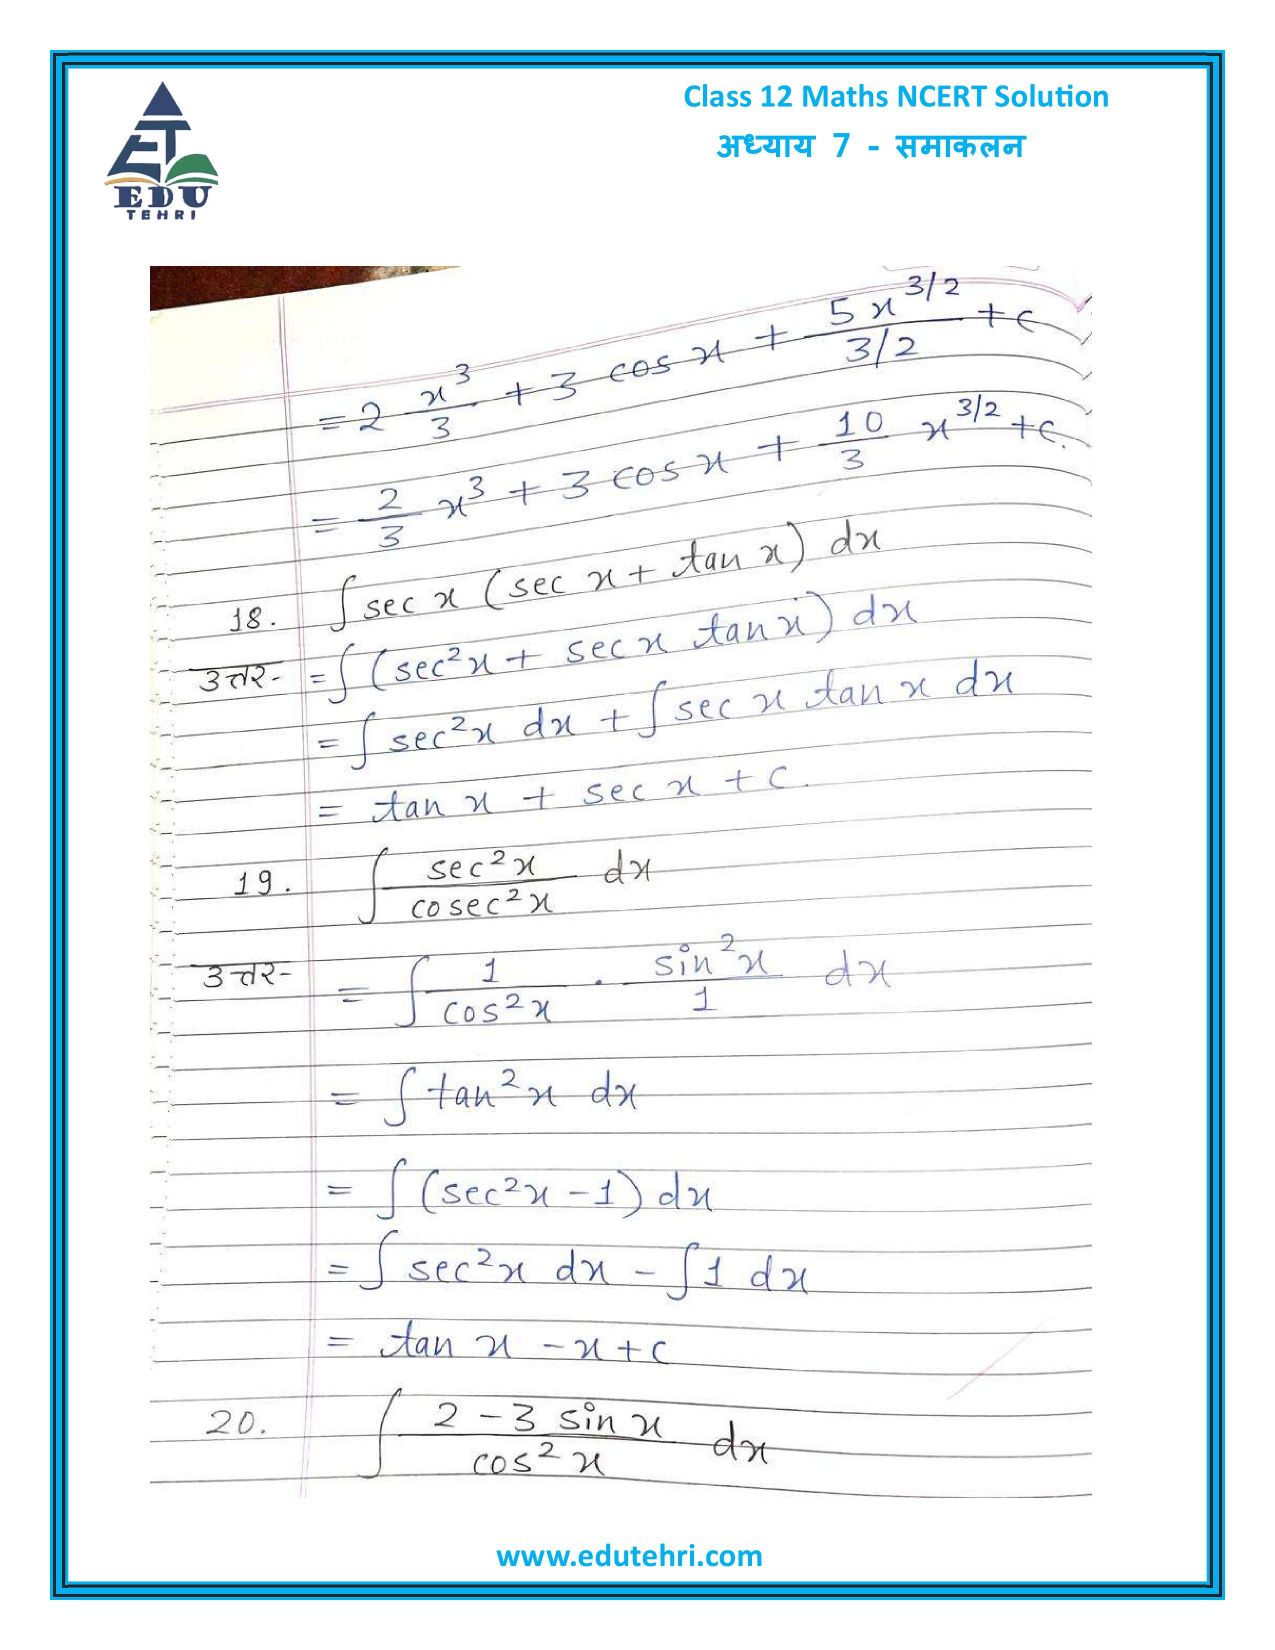 Class 12 Maths NCERT Solution
अध्याय 7 - समाकलन
EDU
TEHRI
= 2 x³/3 + 3 cos x + 5x^3/2 / 3/2 + c
= 2/3 x³ + 3 cos x + 10/3 x^3/2 + c.
18. ∫ sec x (sec x + tan x) dx
उत्तर- = ∫ (sec²x + sec x tan x) dx
= ∫ sec²x dx + ∫ sec x tan x dx
= tan x + sec x + c.
19. ∫ sec²x / cosec²x dx
उत्तर- = ∫ 1/cos²x . sin²x/1 dx
= ∫ tan²x dx
= ∫ (sec²x - 1) dx
= ∫ sec²x dx - ∫ 1 dx
= tan x - x + c
20. ∫ 2 - 3 sin x / cos²x dx
www.edutehri.com